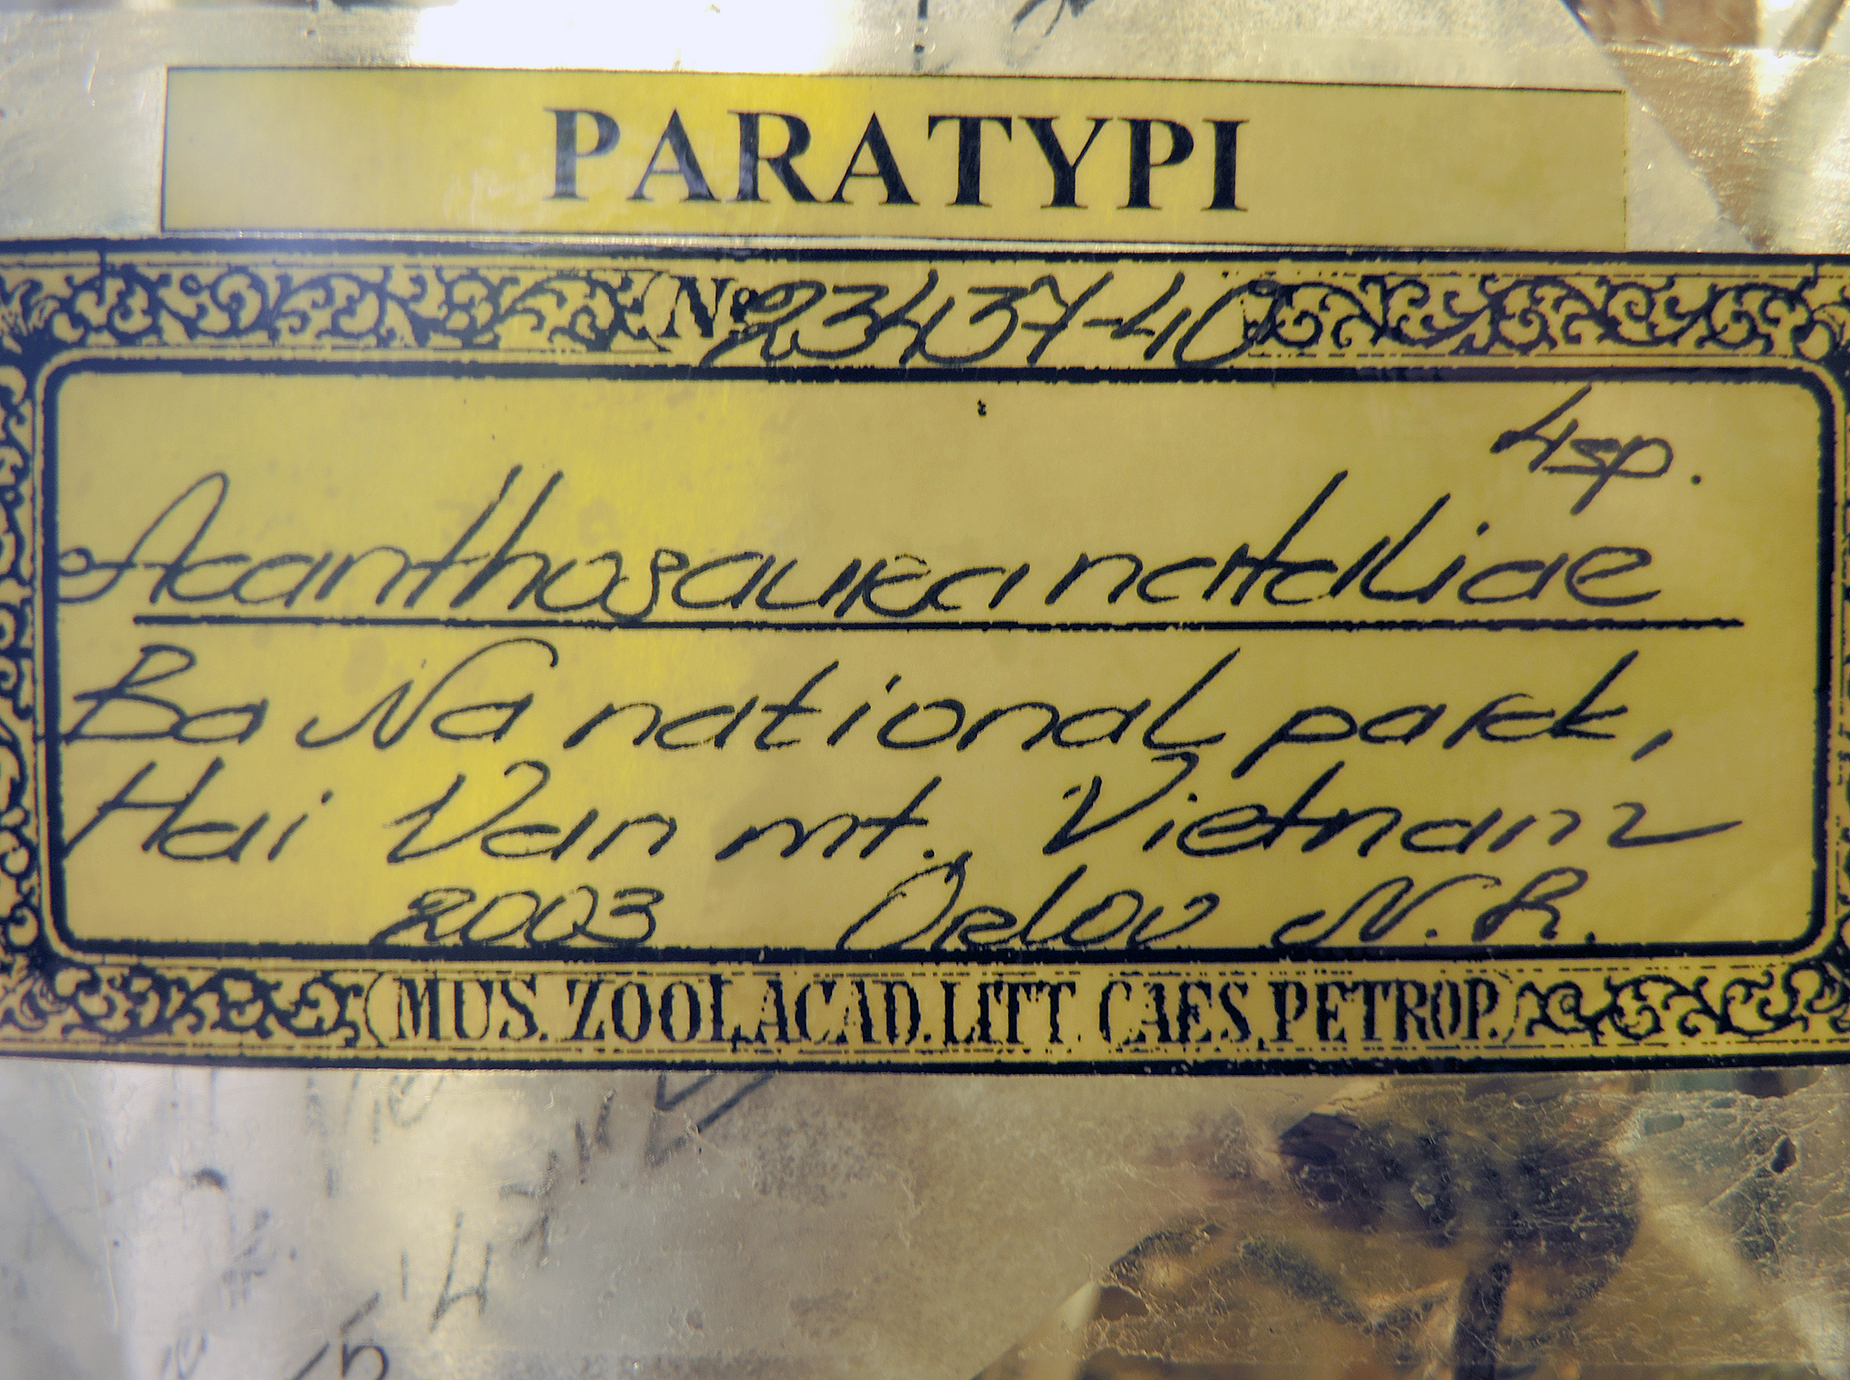 PARATYPI
№ 23437-40
4sp.
Acanthosaura nataliae
Ba Na national park,
Hai Van mt., Vietnam
2003 Orlov N. L.
(MUS. ZOOL. ACAD. LITT. CAES. PETROP.)